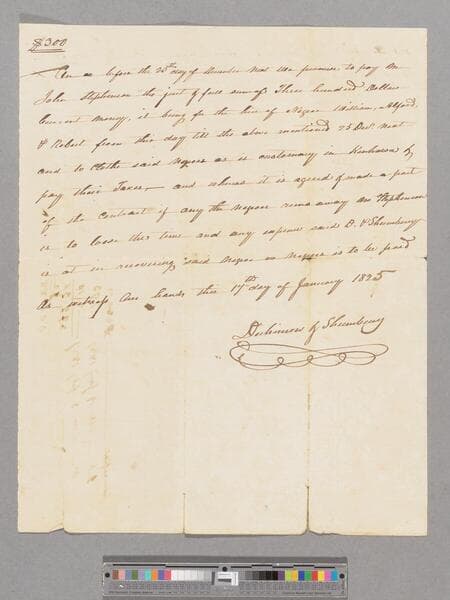 $300
On or before the 25th day of December next we promise to pay Mr
John Stephenson the just & full sum of Three hundred Dollars
Current money, it being for the hire of Negroes William, Alford,
& Robert from this day till the above mentioned 25 Decr next
and to Clothe said Negroes as is customary in Kanhawa &
pay their Taxes, and whereas it is agreed & made a part
of the contract if any the negroes runs away Mr Stephenson
is to loose the time and any expense said D. & Shrewsbury
is at in recovering said Negro or Negroes is to be paid
As witness Our hands this 17th day of January 1825
Dickinson & Shrewsbury